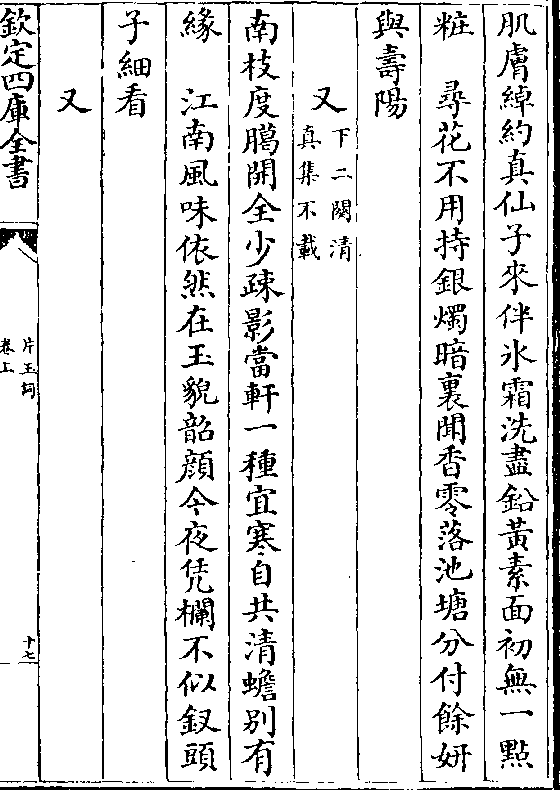 肌膚綽約真仙子來伴氷霜洗盡鉛黃素面初無一點
粧　尋花不用持銀燭暗裏聞香零落池塘分付餘妍
與壽陽
又下二闋清真集不載
南枝度臈開全少疎影當軒一種宜寒自共清蟾別有
緣　江南風味依然在玉貌韶顔今夜凭欄不似釵頭
子細看
又
欽定四庫全書
片玉詞
卷上
十七